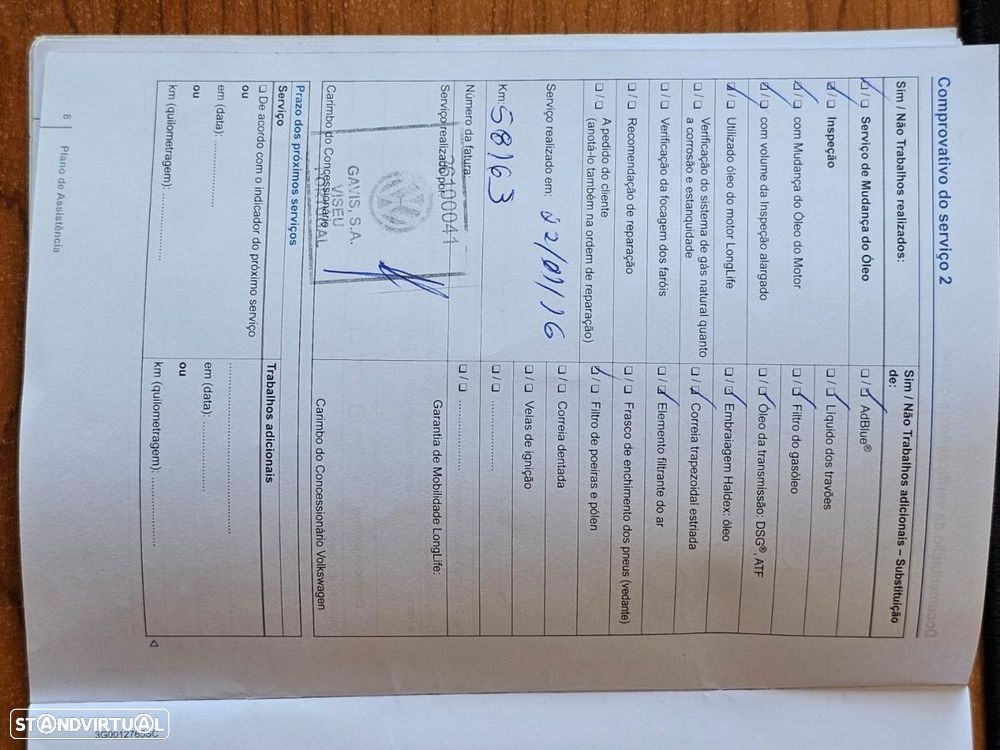 Comprovativo do serviço 2
Sim / Não Trabalhos realizados:
❏ / ❏ Serviço de Mudança do Óleo
❏ / ❏ Inspeção
❏ / ❏ com Mudança do Óleo do Motor
❏ / ❏ com volume da Inspeção alargado
❏ / ❏ Utilizado óleo do motor LongLife
❏ / ❏ Verificação do sistema de gás natural quanto
a corrosão e estanquidade
❏ / ❏ Verificação da focagem dos faróis
❏ / ❏ Recomendação de reparação
❏ / ❏ A pedido do cliente
(anotá-lo também na ordem de reparação)
Serviço realizado em: 22/01/16
Km: 58163
Número da fatura:
Serviço realizado por:
26100041
Carimbo do Concessionário
GAVIS, S.A.
VISEU
PORTUGAL
Sim / Não Trabalhos adicionais – Substituição
de:
❏ / ❏ AdBlue®
❏ / ❏ Líquido dos travões
❏ / ❏ Filtro do gasóleo
❏ / ❏ Óleo da transmissão: DSG®, ATF
❏ / ❏ Embraiagem Haldex: óleo
❏ / ❏ Correia trapezoidal estriada
❏ / ❏ Elemento filtrante do ar
❏ / ❏ Frasco de enchimento dos pneus (vedante)
❏ / ❏ Filtro de poeiras e pólen
❏ / ❏ Correia dentada
❏ / ❏ Velas de ignição
❏ / ❏ ....................
❏ / ❏ ....................
Garantia de Mobilidade LongLife:
Carimbo do Concessionário Volkswagen
Prazo dos próximos serviços
Serviço
❏ De acordo com o indicador do próximo serviço
ou
em (data): ....................
ou
km (quilometragem): ....................
Trabalhos adicionais
........................................
em (data): ....................
ou
km (quilometragem): ....................
8 Plano de Assistência
STANDVIRTUAL